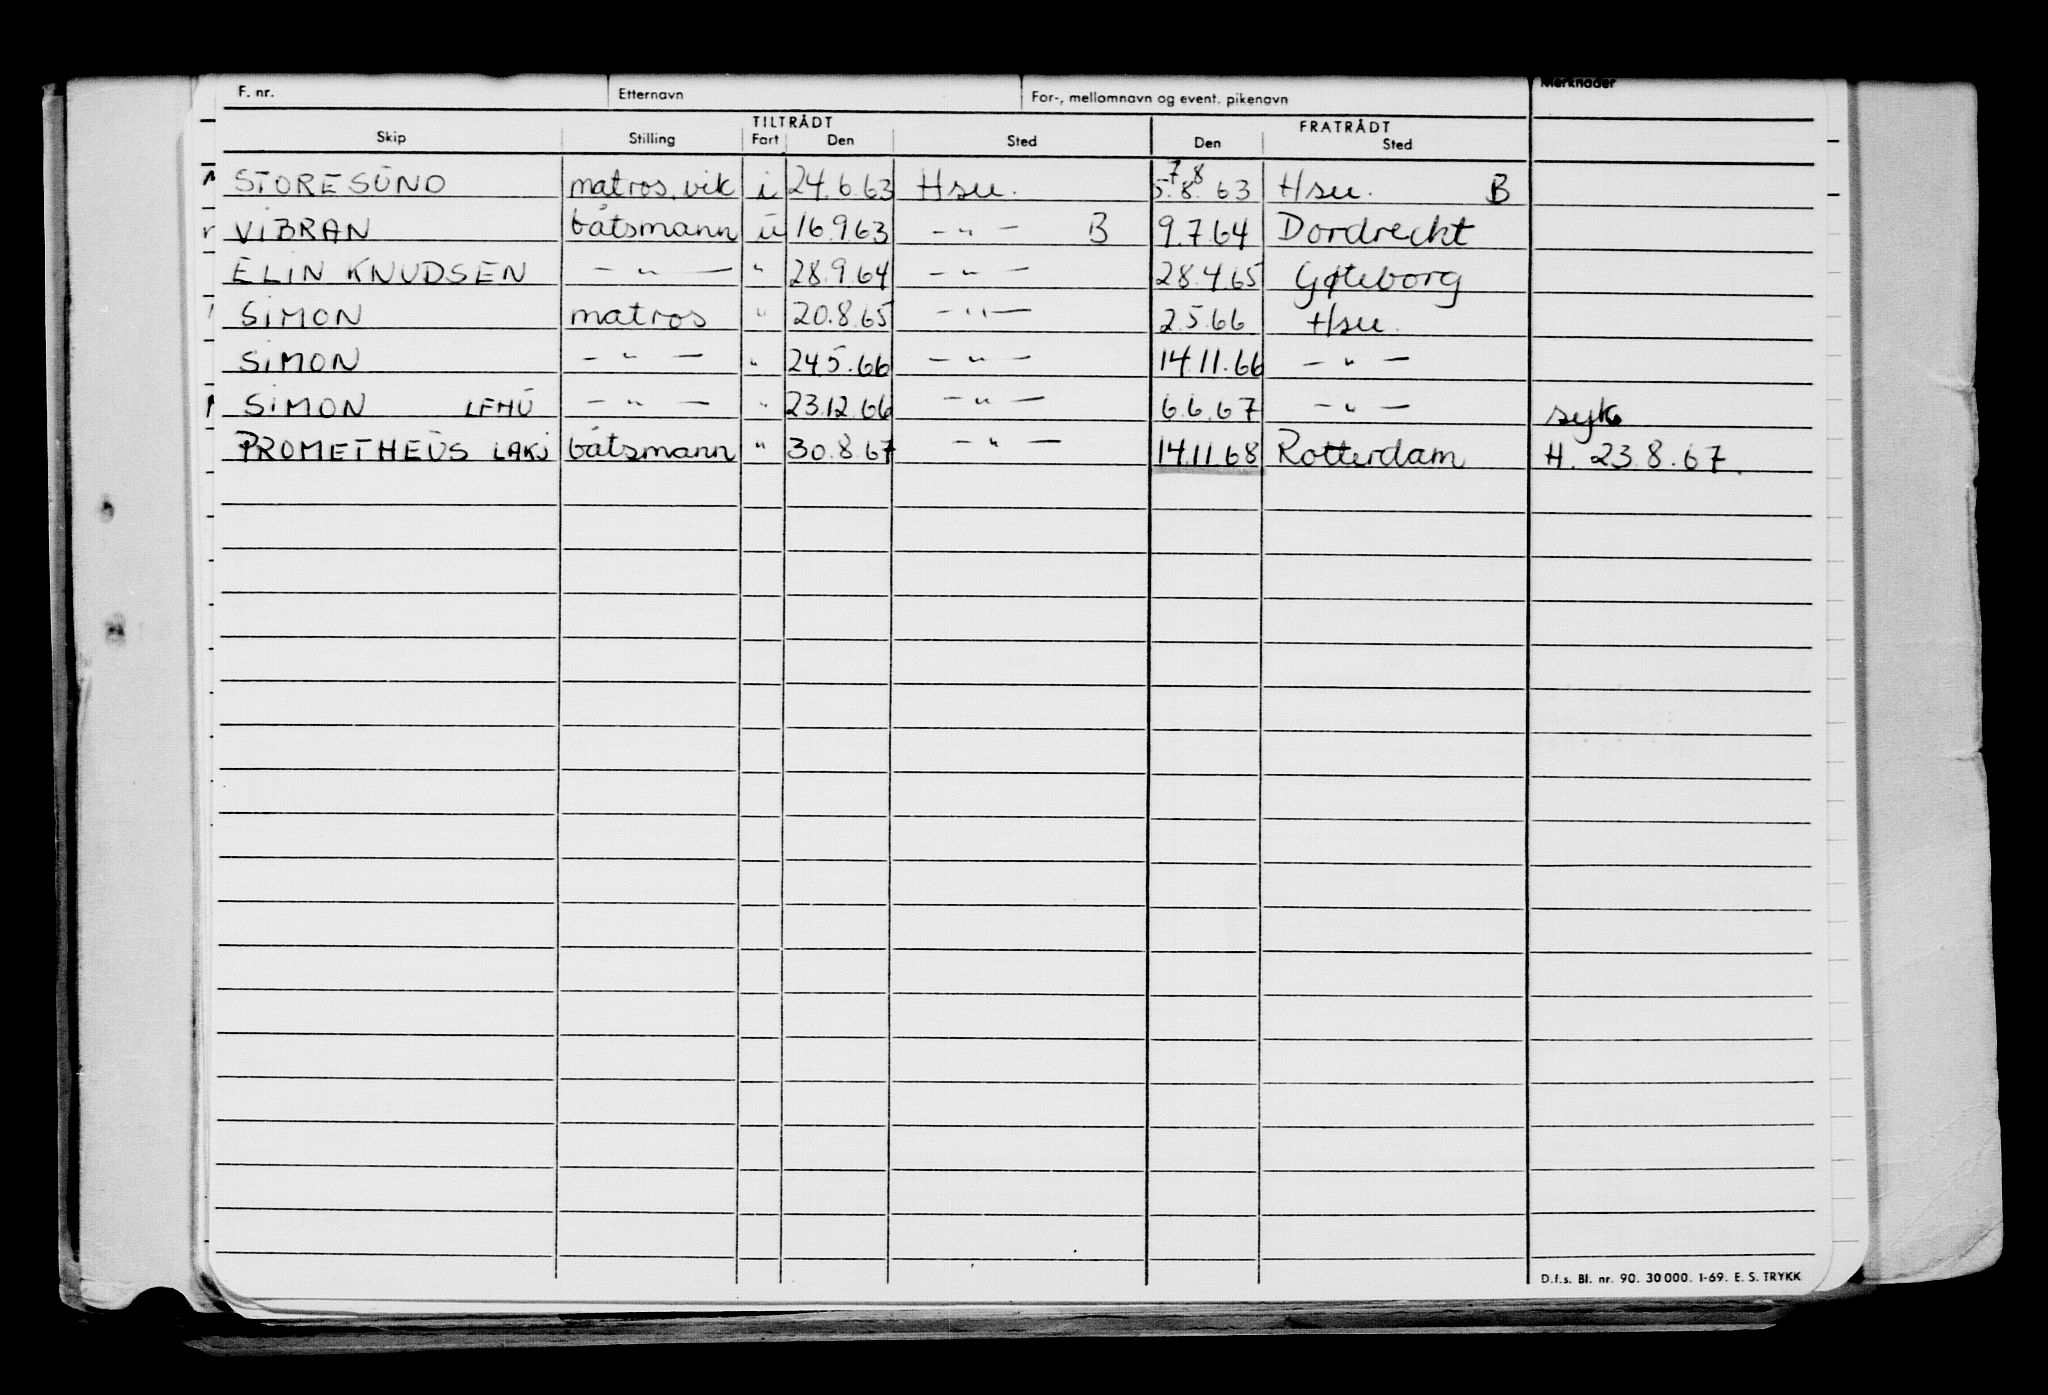 F. nr. Etternavn For-, mellomnavn og event. pikenavn Merknader
TILTRÅDT FRATRÅDT
Skip Stilling Fart Den Sted Den Sted
STORESUND matros.vik i 24.6.63 Hsu. 5.8.63 7 8 Hsu. B
VIBRAN båtsmann u 16.9.63 -"- B 9.7.64 Dordreckt
ELIN KNUDSEN -"- " 28.9.64 -"- 28.4.65 Gøteborg
SIMON matros " 20.8.65 -"- 2.5.66 Hsu.
SIMON -"- " 24.5.66 -"- 14.11.66 -"-
SIMON LFHU -"- " 23.12.66 -"- 6.6.67 -"- syk
PROMETHEUS LAKJ båtsmann " 30.8.67 -"- 14.11.68 Rotterdam H. 23.8.67.
D.f.s. Bl. nr. 90. 30000. 1-69. E. S. TRYKK